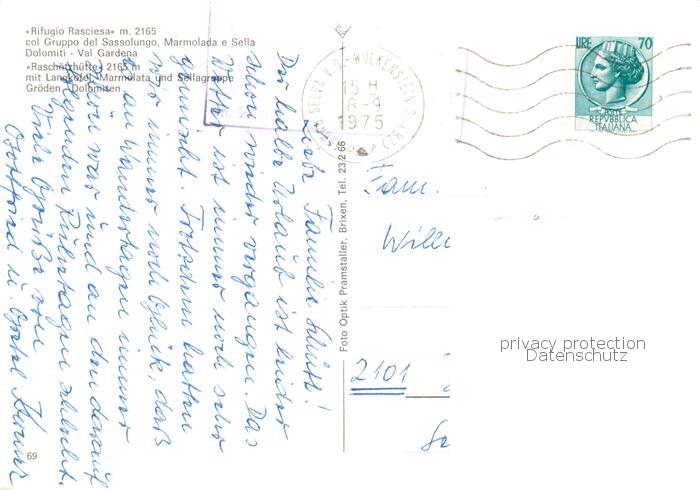 «Rifugio Rasciesa» m. 2165
col Gruppo del Sassolungo, Marmolada e Sella
Dolomiti - Val Gardena
«Raschötzhütte» 2165 m
mit Langkofel, Marmolata und Sellagruppe
Gröden - Dolomiten
SELVA V.G. - WOLKENSTEIN G. (BZ)
15 H
8-9
1975
LIRE 70
POSTE
REPVBBLICA
ITALIANA
Liebe Familie
Der halbe Urlaub ist leider
schon wieder vergangen. Das
Wetter ist immer noch sehr
gemischt. Trotzdem hatten
wir immer noch Glück, daß
es an Wandertagen immer
schön war und an den darauf
folgenden Ruhetagen schlecht.
Viele Grüße von
u.
Foto Optik Pramstaller, Brixen, Tel. 23266
Fam.
Will
2101
69
privacy protection
Datenschutz